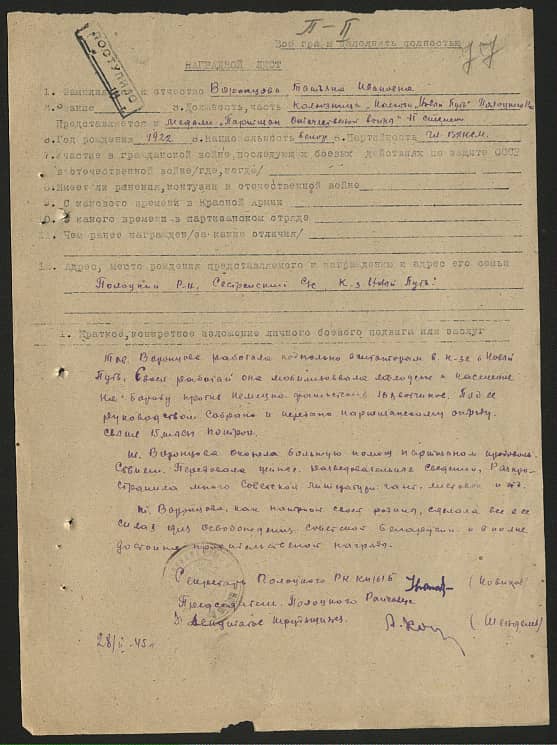 П-П
Все графы заполнять полностью
77
ПОСТУПИЛО
НАГРАДНОЙ ЛИСТ
1. Фамилия, имя и отчество Воронцова Татьяна Ивановна
2. Звание 3. Должность, часть колхозница, колхоза "Новый Путь" Полоцкого
Представляется к медали "Партизан Отечественной войны" II степени
4. Год рождения 1922 5. Национальность белор 6. Партийность чл. ВЛКСМ.
7. Участие в гражданской войне, последующих боевых действиях по защите СССР
и отечественной войне/где, когда/
8. Имеет ли ранения, контузии в отечественной войне
9. С какого времени в Красной Армии
10. С какого времени в партизанском отряде
11. Чем ранее награжден/за какие отличия/
12. Адрес, место рождения представляемого к награждению и адрес его семьи
Полоцкий р-н, с/с, к-з Новый Путь.
1. Краткое, конкретное изложение личного боевого подвига или заслуг
Тов. Воронцова работала подпольно агитатором в к-зе "Новый
Путь". Своей работой она мобилизовала молодежь и население
на борьбу против немецко-фашистских захватчиков. Под ее
руководством собрано и передано партизанскому отряду
свыше 15 тысяч патрон.
т. Воронцова оказала большую помощь партизанам продоволь-
ствием. Передавала ценные разведовательные сведения, Распро-
странила много советской литературы: газет, листовок и тд.
т. Воронцова, как патриот своей родины, сделала все в ее
силах для освобождения советской Белоруссии и вполне
достойна правительственной награды.
Секретарь Полоцкого РК КП(б)Б (Новиков)
Председатель Полоцкого Райсовета
Депутатов трудящихся.
28/II-45 г.